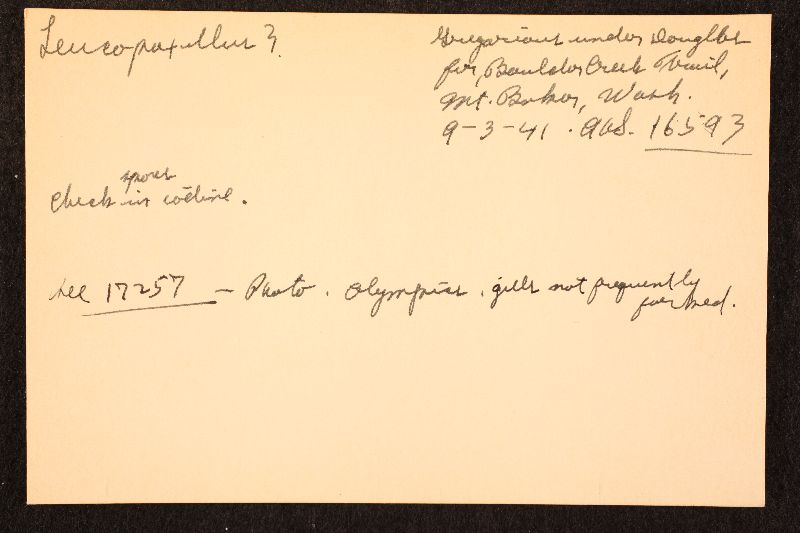 Leucopaxillus ?
Gregarious under Douglas
fir, Boulder Creek Trail,
Mt. Baker, Wash.
9-3-41. AHS. 16593
spores
check in iodine.
see 17257 - Photo. Olympics. gills not frequently
forked.